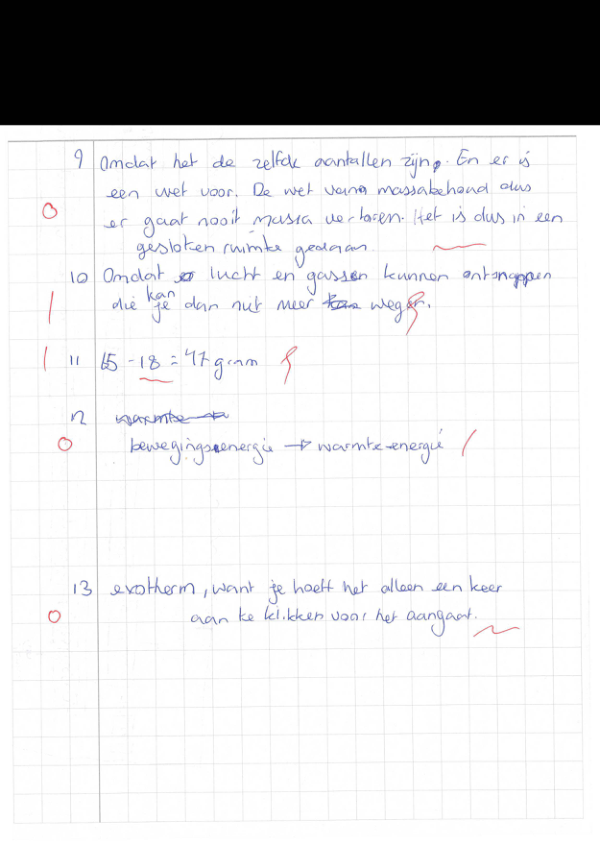 9 Omdat het de zelfde aantallen zijn. En er is
een wet voor. De wet van massabehoud dus
er gaat nooit massa verloren. Het is dus in een
gesloten ruimte gedaan.
10 Omdat lucht en gassen kunnen ontsnappen
die kan je dan niet meer wegen.
11 65 - 18 = 47 gram
12
bewegingsenergie → warmte energie
13 exotherm, want je hoeft het alleen een keer
aan te klikken voor het aangaat.
0
1
1
0
0